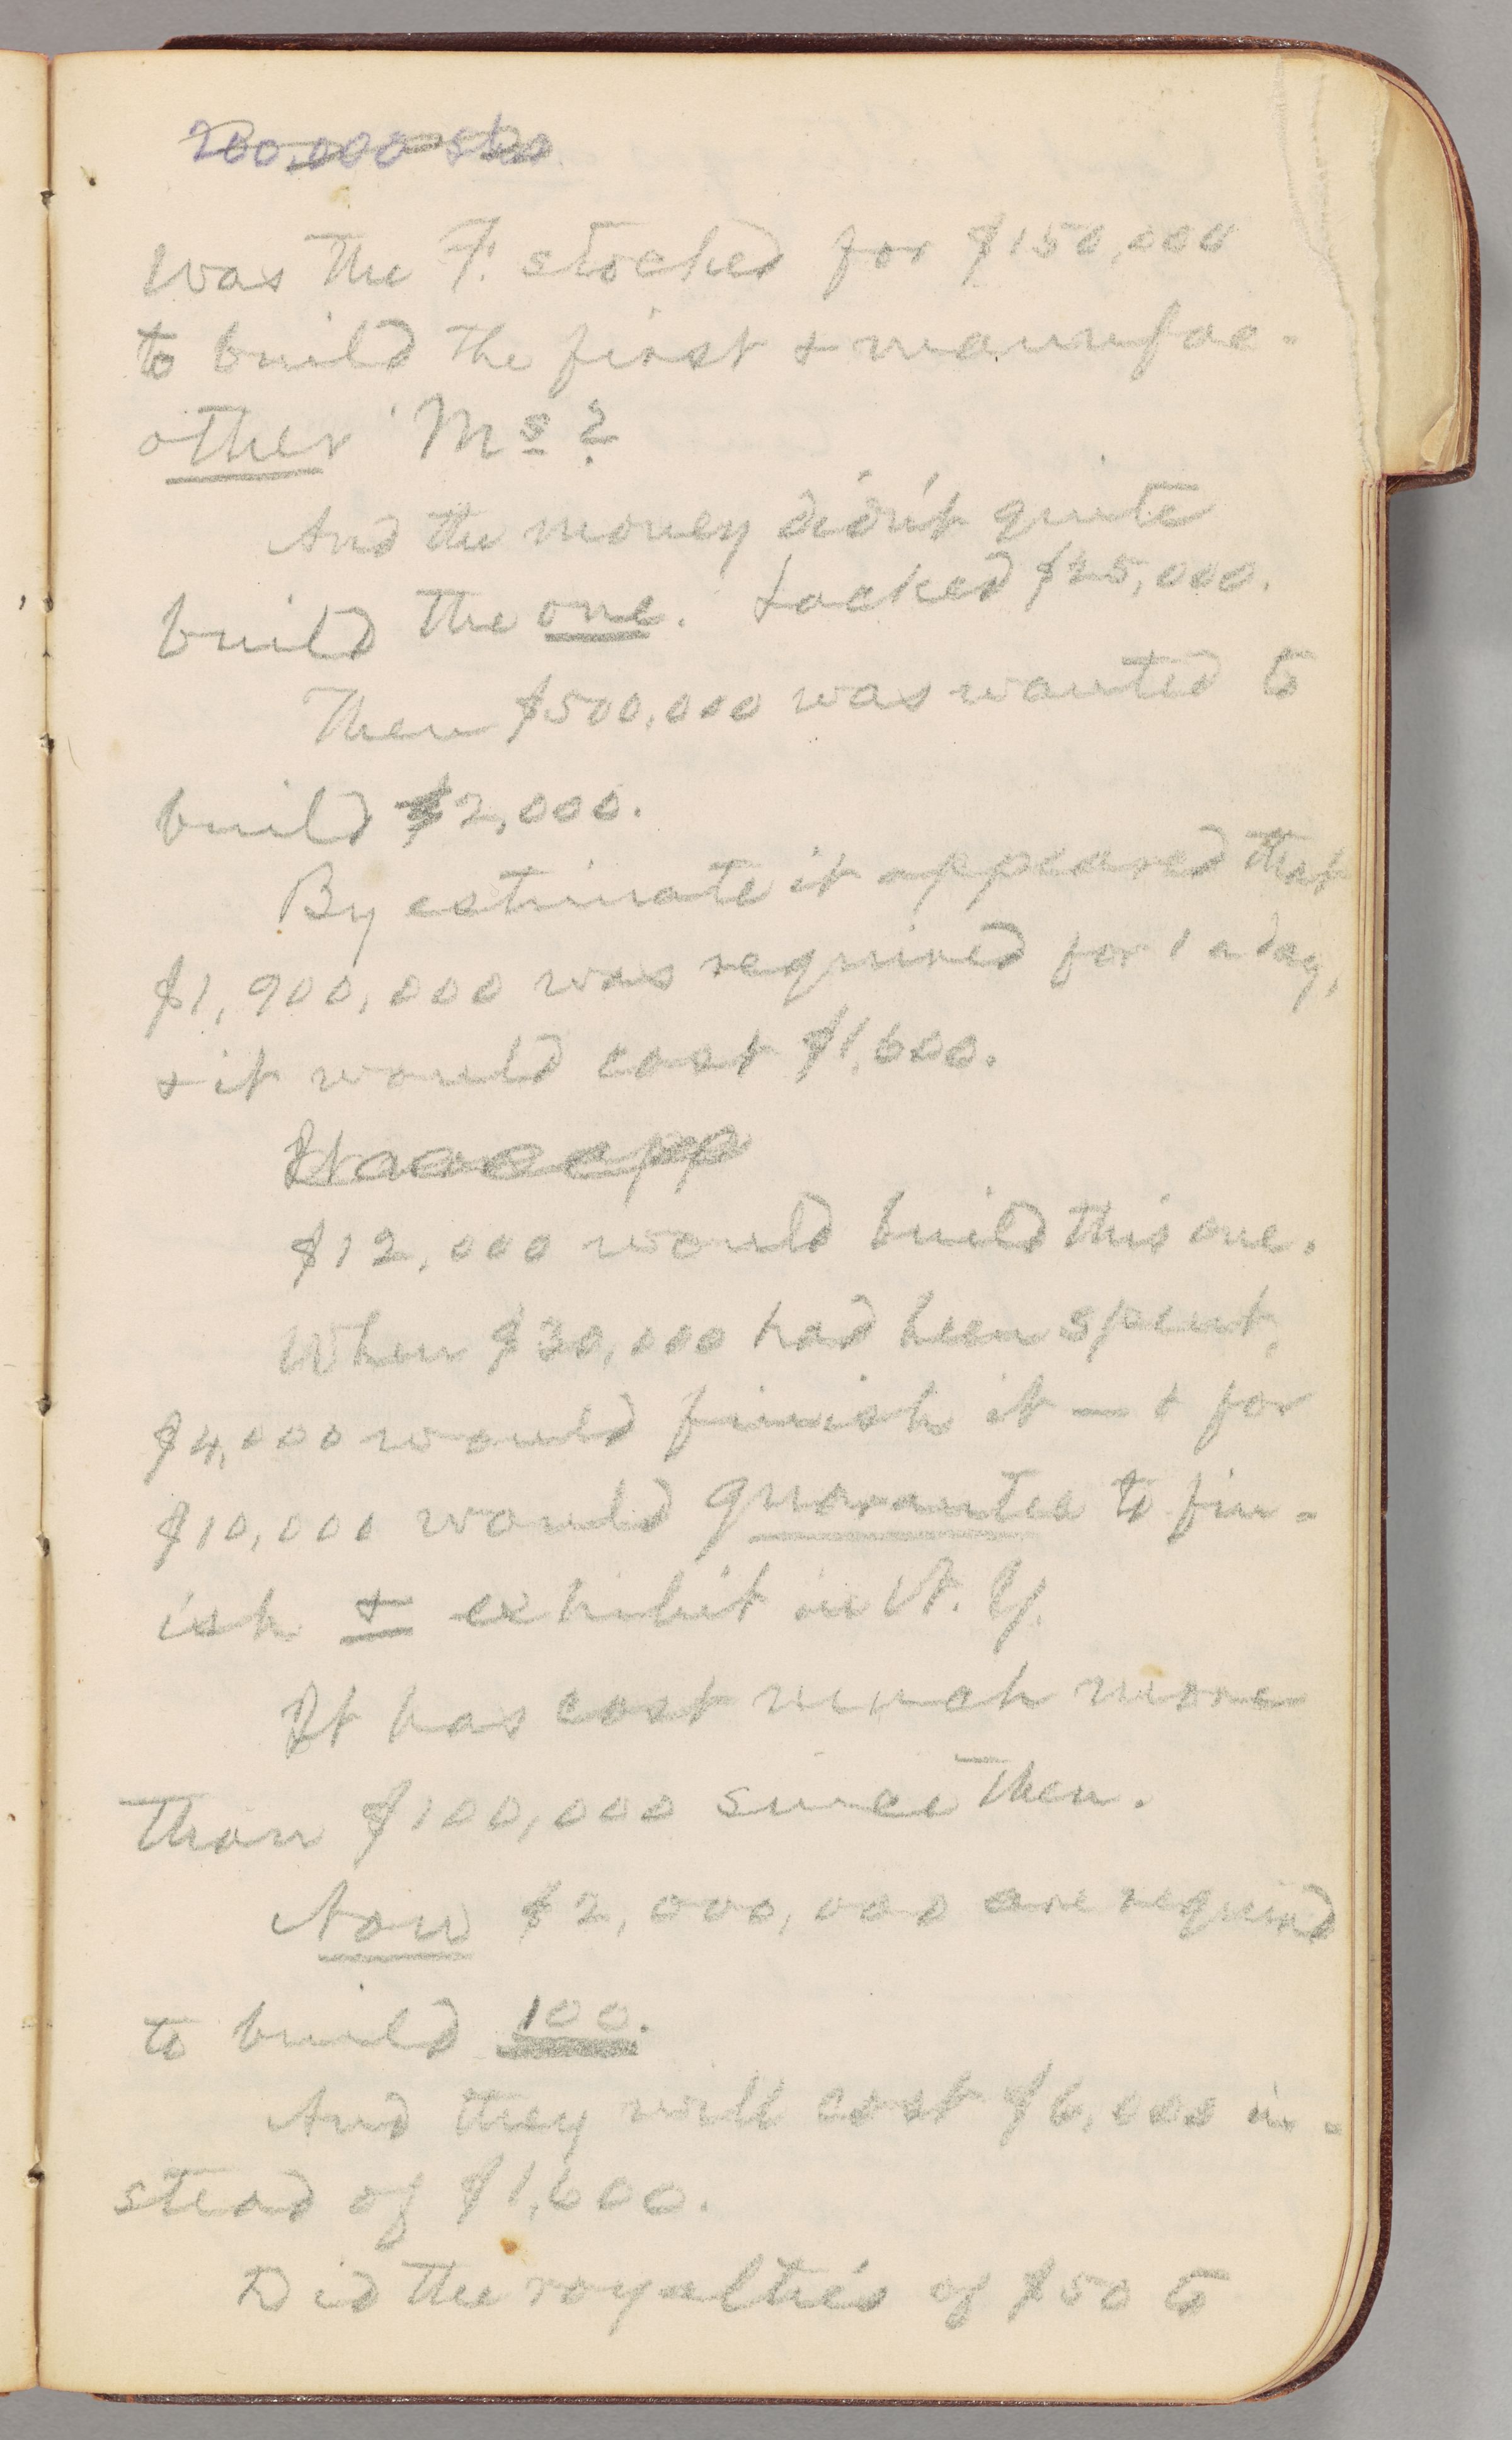 200,000 shs.
Was the F. stocked for $150,000
to build the first & manufac-
other Ms?
And the money didn't quite
build the one. Lacked $25,000.
Then $500,000 was wanted to
build 2,000.
By estimate it appeared that
$1,900,000 was required for 1 a day,
& it would cost $1,600.
It
$12,000 would build this one.
When $30,000 had been spent,
$4,000 would finish it — & for
$10,000 would guarantee to fin-
ish & exhibit in N. Y.
It has cost much more
than $100,000 since then.
Now $2,000,000 are required
to build 100.
And they will cost $6,000 in-
stead of $1,600.
Did the royalties of $50 to